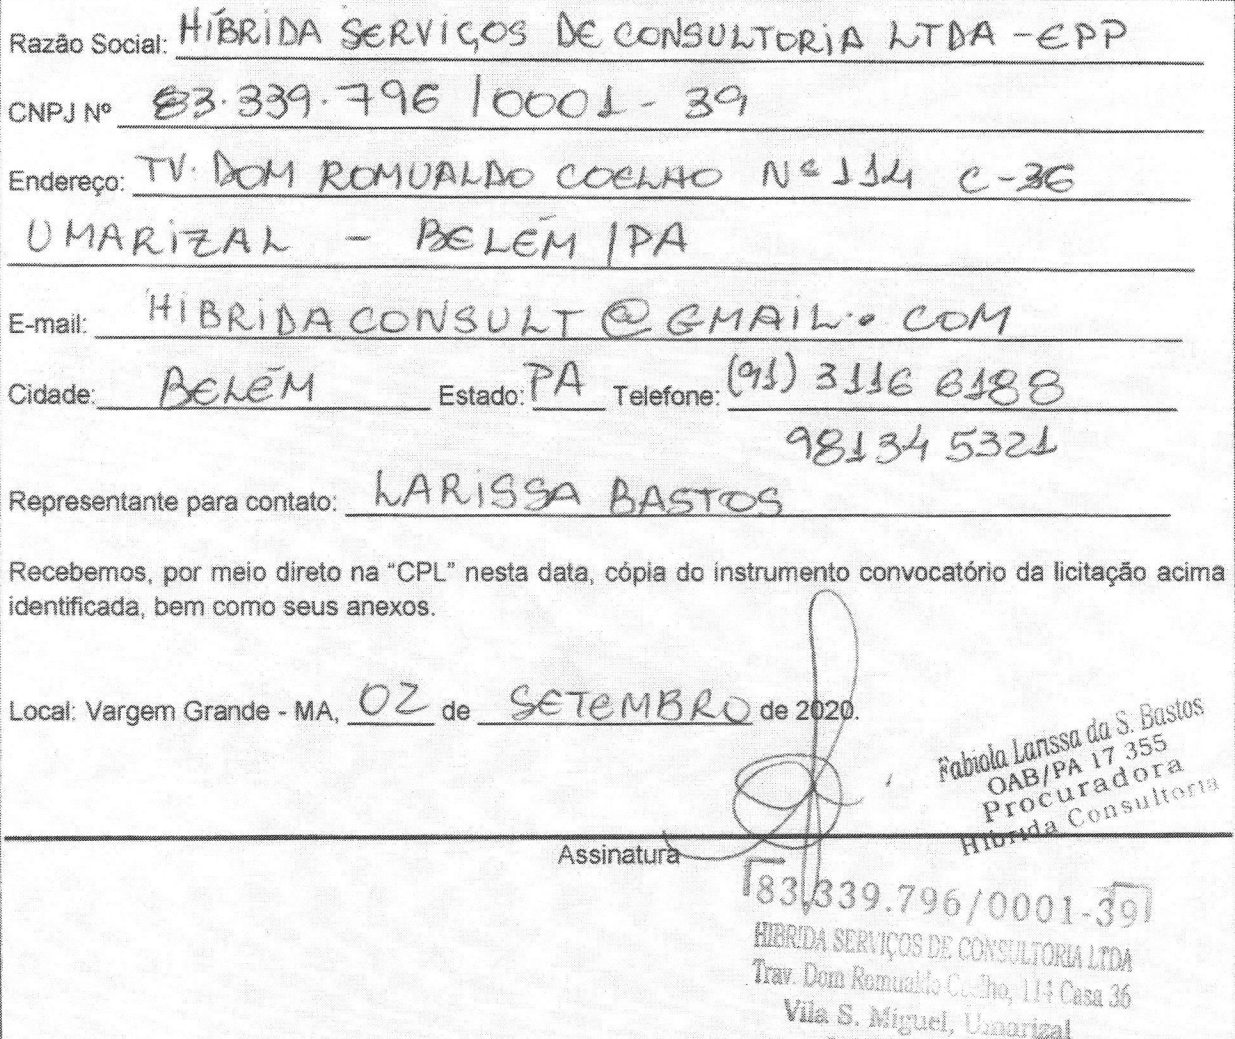 Razão Social: HÍBRIDA SERVIÇOS DE CONSULTORIA LTDA - EPP
CNPJ Nº 83.339.796/0001-39
Endereço: TV. DOM ROMUALDO COELHO Nº 114 C-36
UMARIZAL - BELÉM/PA
E-mail: HIBRIDACONSULT@GMAIL.COM
Cidade: BELÉM Estado: PA Telefone: (91) 3116 6188
98134 5321
Representante para contato: LARISSA BASTOS
Recebemos, por meio direto na “CPL” nesta data, cópia do instrumento convocatório da licitação acima
identificada, bem como seus anexos.
Local: Vargem Grande - MA, 02 de SETEMBRO de 2020.
Fabiola Larissa da S. Bastos
OAB/PA 17 355
Procuradora
Hibrida Consultoria
Assinatura
83.339.796/0001-39
HIBRIDA SERVIÇOS DE CONSULTORIA LTDA
Trav. Dom Romualdo Coelho, 114 Casa 36
Vila S. Miguel, Umarizal